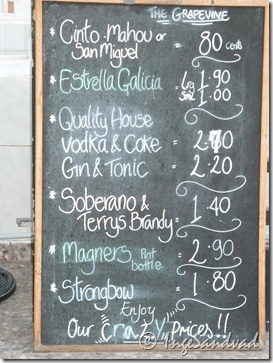 THE GRAPEVINE
* Cinto · Mahou or = 80 cents
San Miguel
* Estrella Galicia = Lg 1·90
Sml 1·00
* Quality House
Vodka & Coke =
Gin & Tonic = 2·20
* Soberano &
Terrys Brandy = 1·40
* Magners Pint bottle = 2·90
* Strongbow = 1·80
Enjoy
Our Crazy Prices!!
© IngeSandvad